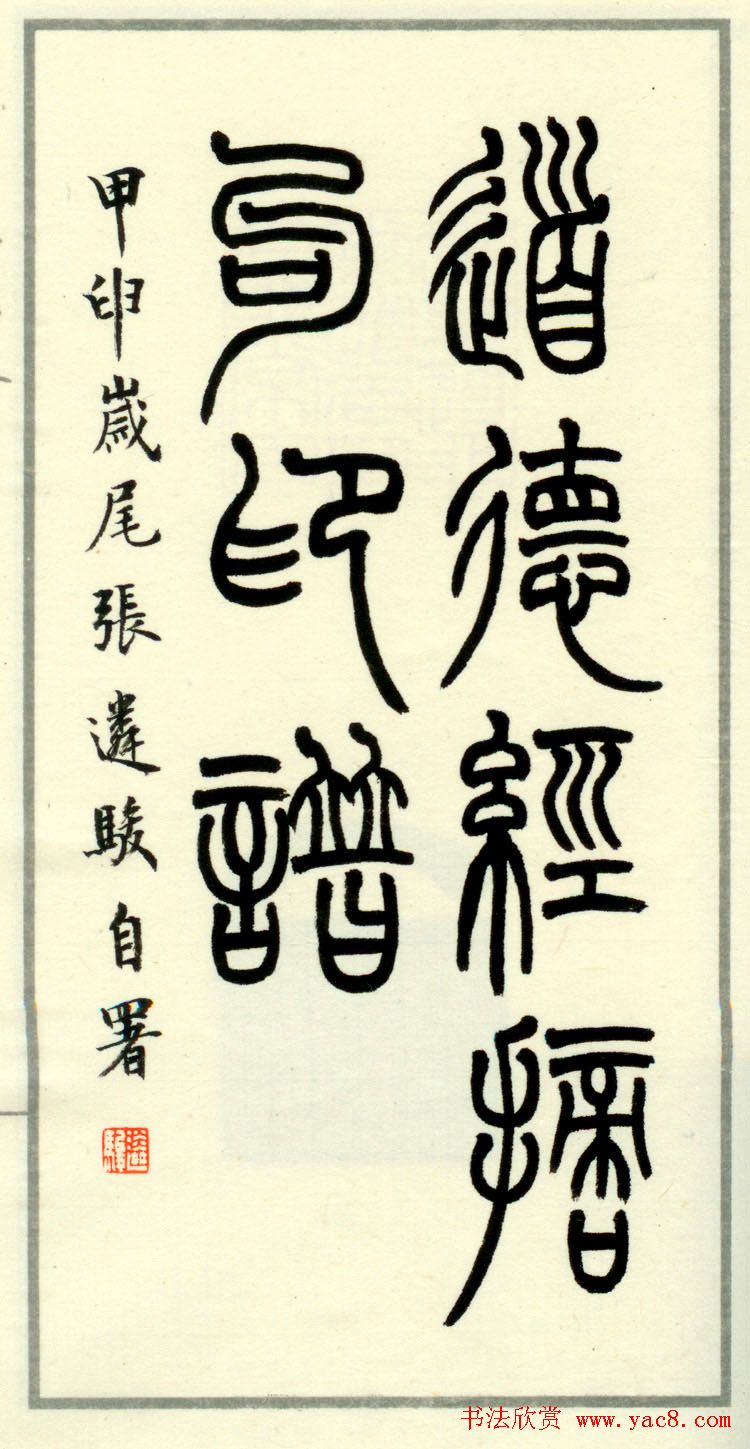 道德經摘
句印譜
甲申歲尾張遴駿自署
遴駿
书法欣赏 www.yac8.com